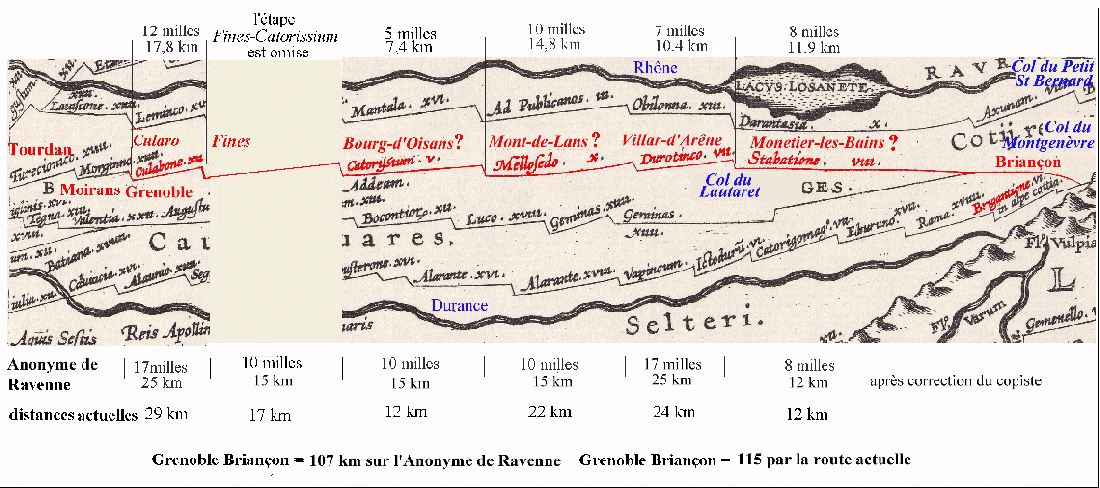 12 milles
17,8 km
l'étape
Fines-Catorissium
est omise
5 milles
7,4 km
10 milles
14,8 km
7 milles
10.4 km
8 milles
11.9 km
Rhône
RAVR
Col du Petit
St Bernard
LACVS LOSANETE
Lauscone. xiiii.
Leminco. xvi.
Mantala. xvi.
Ad Publicanos. iii.
Obilonna. xiii.
Darantasia. x.
Axunam.
Cotii r
Col du
Montgenèvre
Tourdan
Cularo
Fines
Bourg-d'Oisans ?
Mont-de-Lans ?
Villar-d'Arêne
Monetier-les-Bains ?
Briançon
Turecionico. xiiii.
Morginno.
Culabone. xii.
Catorissium. v.
Mellosedo. x.
Durotinco. vii.
Stabatione. viii.
B
Moirans
Grenoble
Addeam.
Col du
Lautaret
GES.
Brigantione. vi.
in alpe cottia.
Tegna. xiii.
Valentia. xxii.
Augustu
Bocontioro. xx.
Luco. xviii.
Geminas. xiii.
Geminas.
xiiii.
Cau
uares.
Batiana. xii.
Ictodurū. vi.
Catorigomag. vii.
Eburuno. xvi.
Rama. xviii.
Fl. Vulpia
um. xii.
iulia. xi.
Alaunio. xiiii.
Seg
usterone. xvi.
Alarante. xvi.
Alarante. xviii.
Vapincum.
L
Durance
Aquis Sestis
Reis Apollin
naris
Selteri.
Fl. Varum
Gemenello.
Anonyme de
Ravenne
17milles
25 km
10 milles
15 km
10 milles
15 km
10 milles
15 km
17 milles
25 km
8 milles
12 km
après correction du copiste
distances actuelles
29 km
17 km
12 km
22 km
24 km
12 km
Grenoble Briançon = 107 km sur l'Anonyme de Ravenne
Grenoble Briançon = 115 par la route actuelle